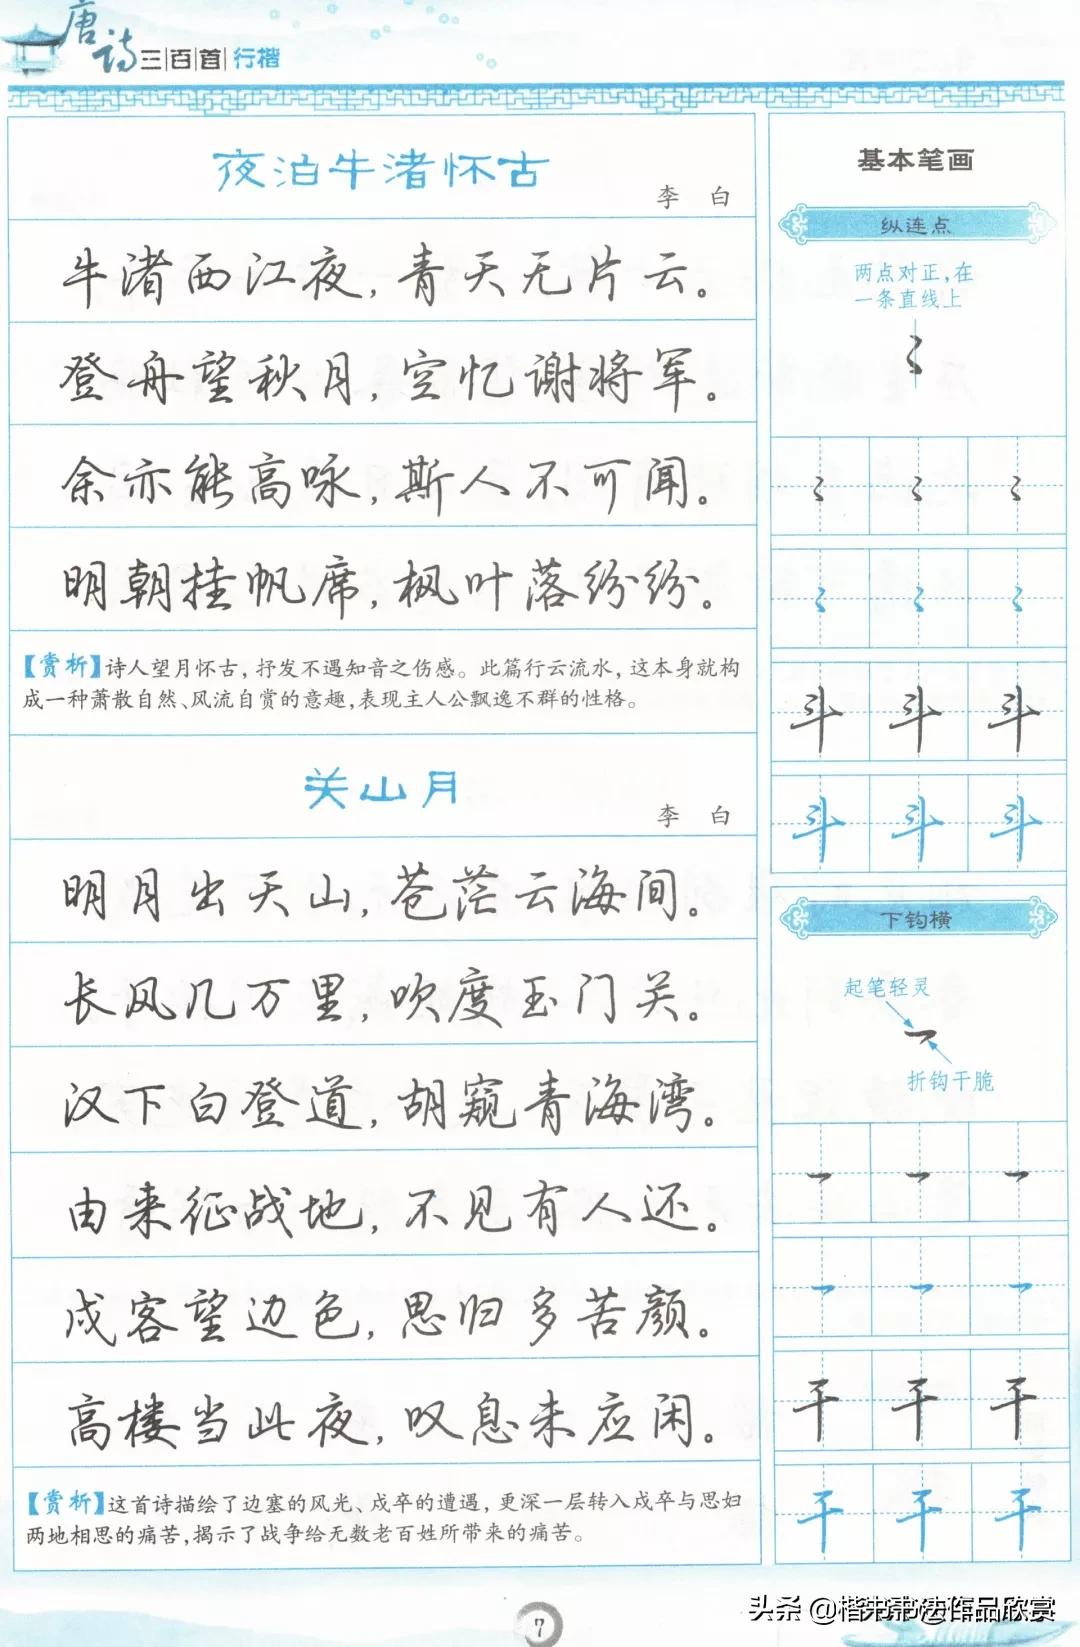 唐诗三百首 行楷
夜泊牛渚怀古
李 白
牛渚西江夜,青天无片云。
登舟望秋月,空忆谢将军。
余亦能高咏,斯人不可闻。
明朝挂帆席,枫叶落纷纷。
【赏析】诗人望月怀古,抒发不遇知音之伤感。此篇行云流水,这本身就构
成一种萧散自然、风流自赏的意趣,表现主人公飘逸不群的性格。
关山月
李 白
明月出天山,苍茫云海间。
长风几万里,吹度玉门关。
汉下白登道,胡窥青海湾。
由来征战地,不见有人还。
戍客望边色,思归多苦颜。
高楼当此夜,叹息未应闲。
【赏析】这首诗描绘了边塞的风光、戍卒的遭遇,更深一层转入戍卒与思妇
两地相思的痛苦,揭示了战争给无数老百姓所带来的痛苦。
基本笔画
纵连点
两点对正,在
一条直线上
斗 斗 斗
斗 斗 斗
下钩横
起笔轻灵
折钩干脆
干 干 干
干 干 干
7
头条 @楷书书法作品欣赏